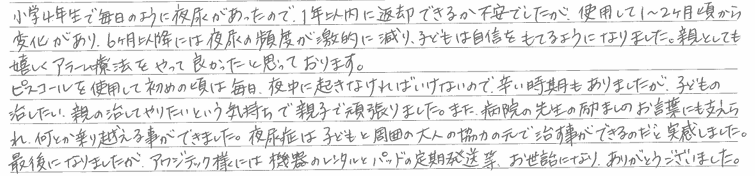 小学4年生で毎日のように夜尿があったので、1年以内に返却できるか不安でしたが、使用して1～2ヶ月頃から
変化があり、6ヶ月以降には夜尿の頻度が激的に減り、子どもは自信をもてるようになりました。親としても
嬉しくアラーム療法をやって良かったと思っております。
ピスコールを使用して初めの頃は毎日、夜中に起きなければいけないので、辛い時期もありましたが、子どもの
治したい、親の治してやりたいという気持ちで親子で頑張りました。また、病院の先生の励ましのお言葉にも支えら
れ、何とか乗り越える事ができました。夜尿症は子どもと周囲の大人の協力の元で治す事ができるのだと実感しました。
最後になりましたが、アワジテック様には機器のレンタルとパッドの定期発送等、お世話になり、ありがとうございました。